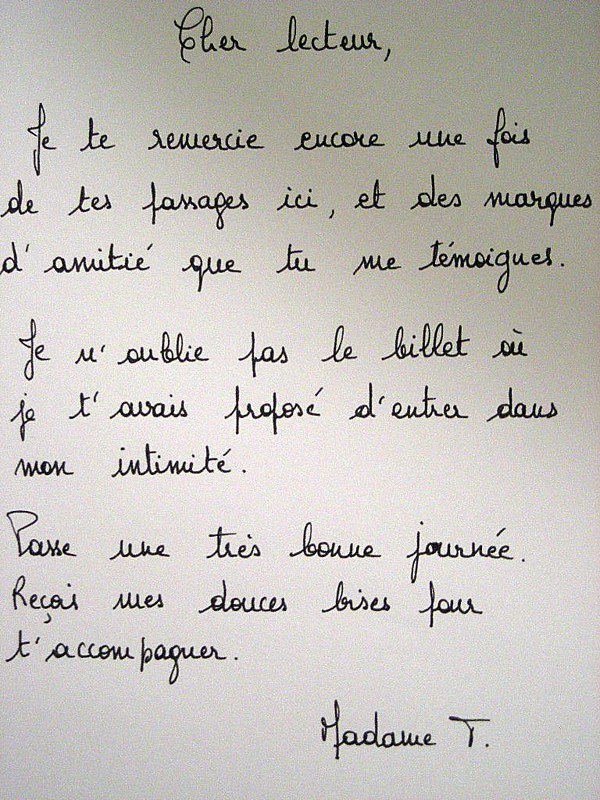 Cher lecteur,
Je te remercie encore une fois
de tes passages ici, et des marques
d'amitié que tu me témoignes.
Je n'oublie pas le billet où
je t'avais proposé d'entrer dans
mon intimité.
Passe une très bonne journée.
Reçois mes douces bises pour
t'accompagner.
Madame T.